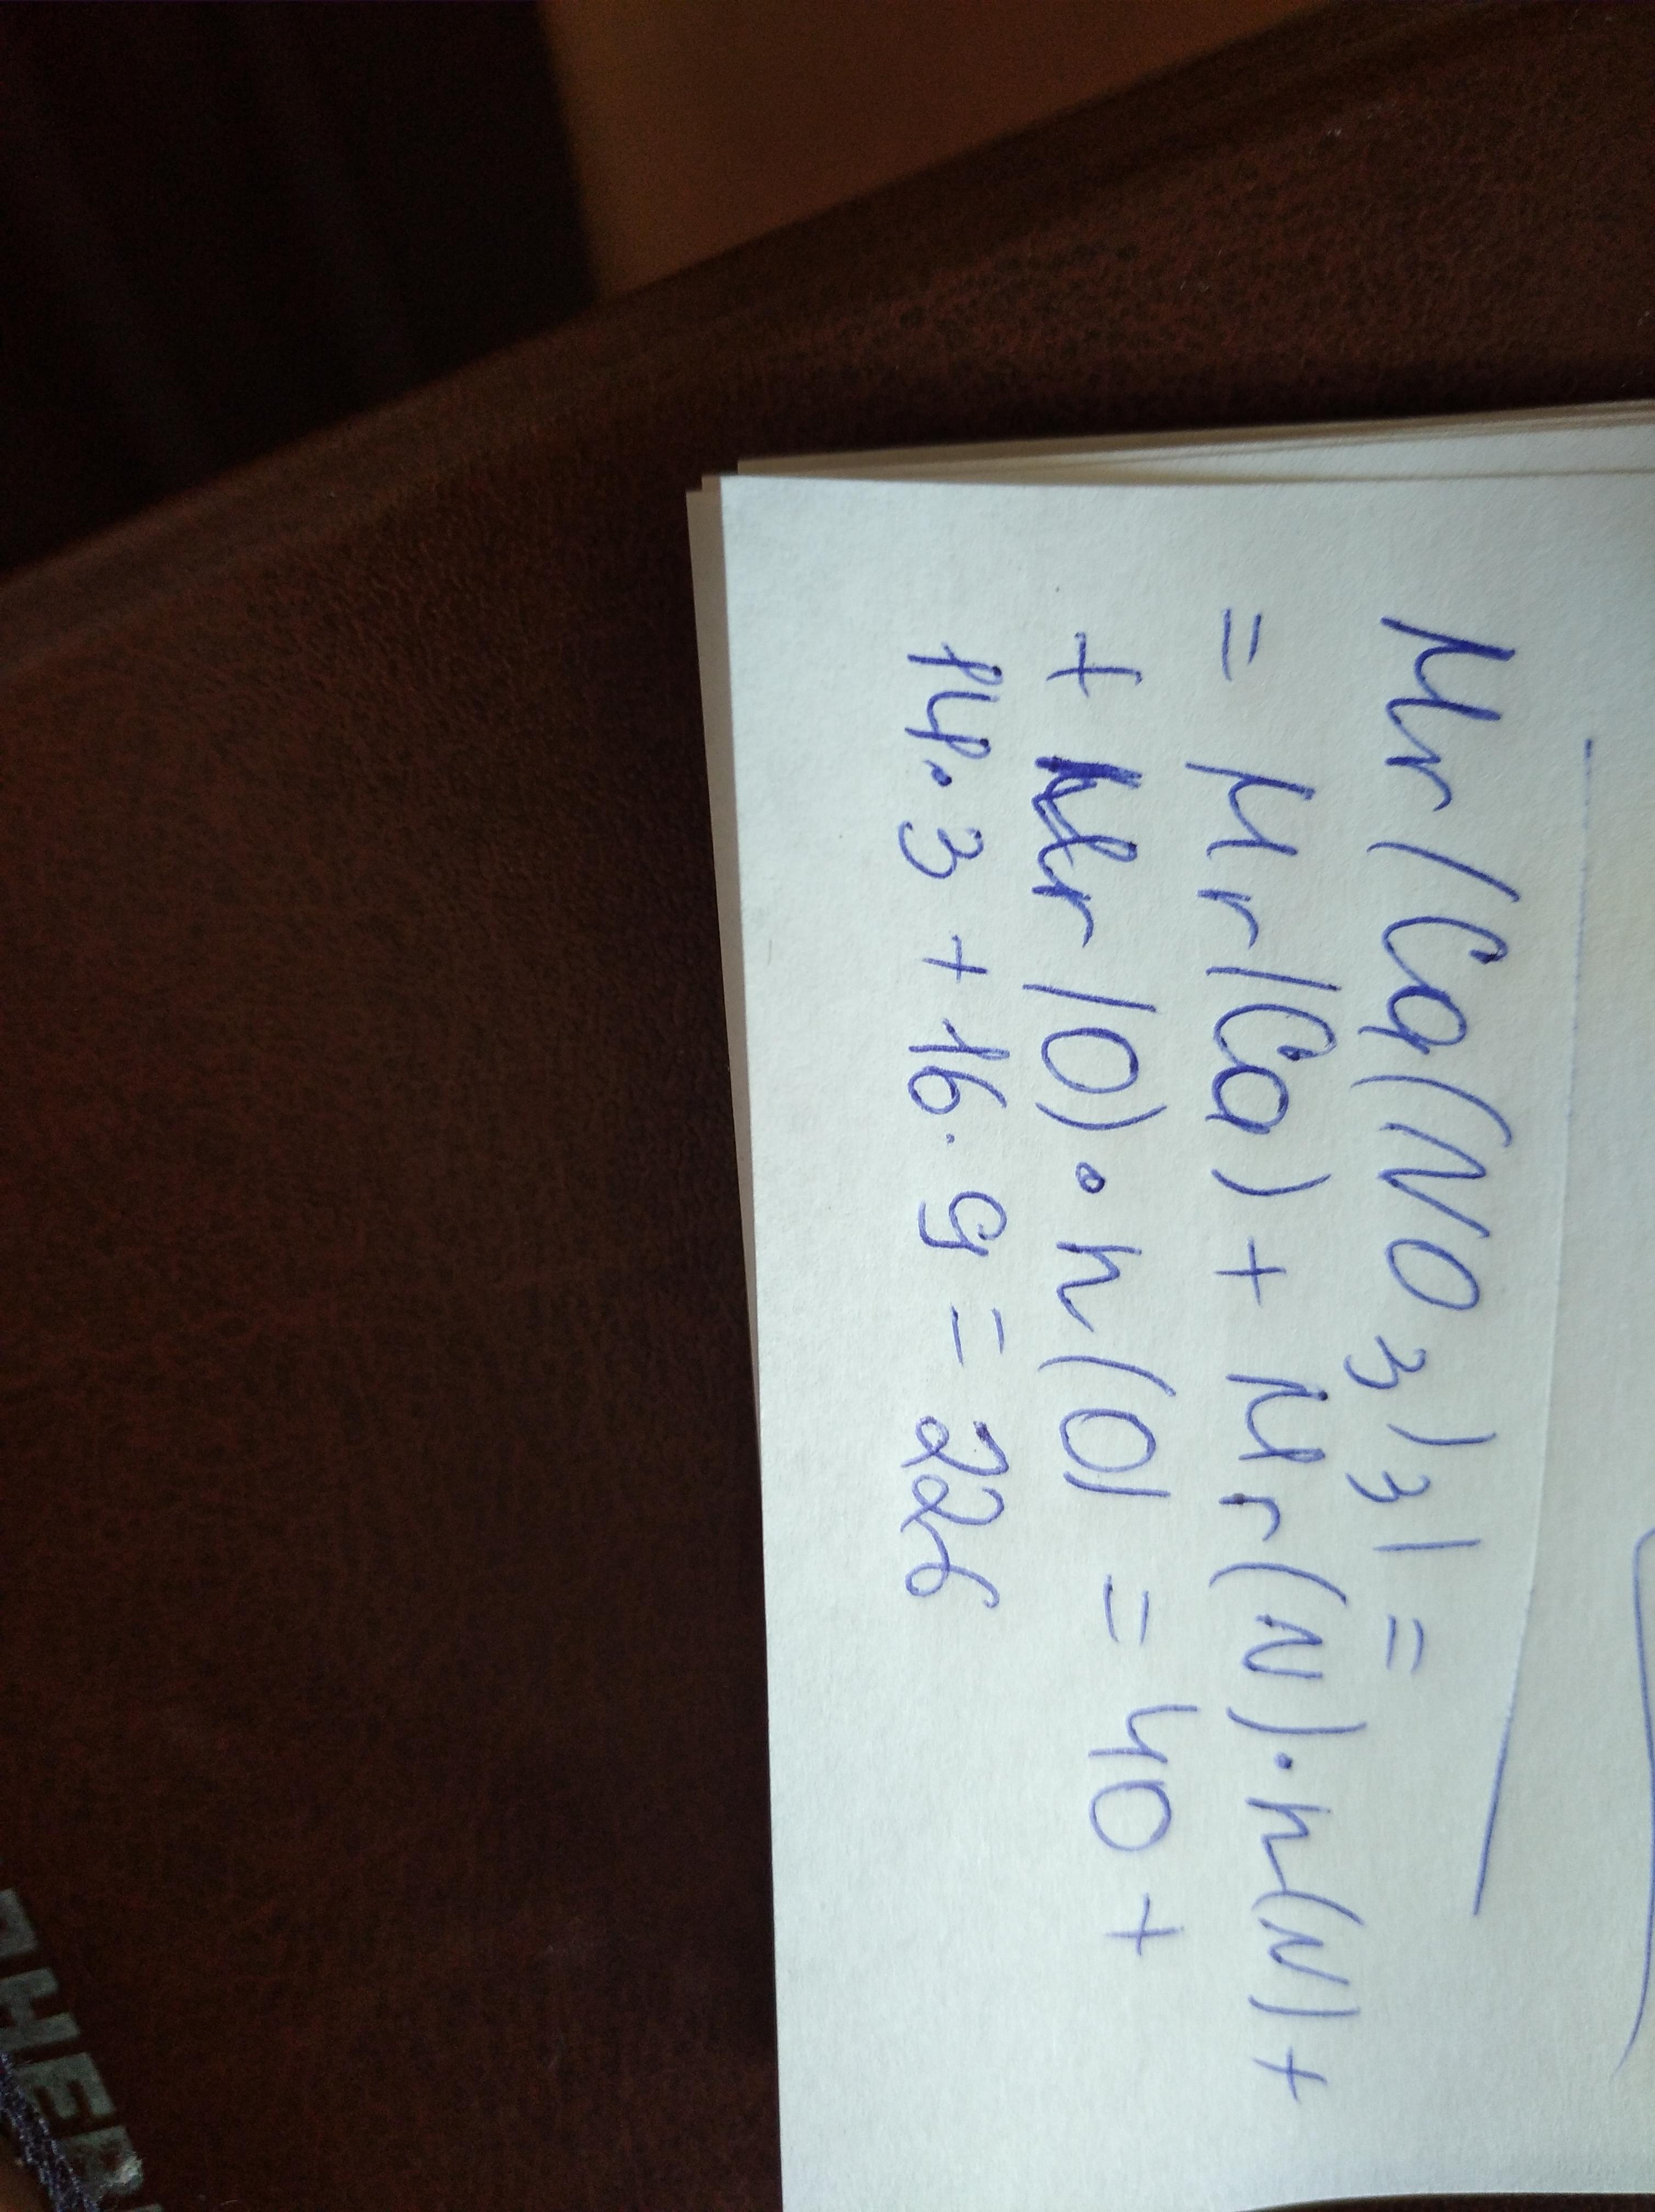 Mr(Ca(NO3)3) =
= Mr(Ca) + Mr(N)·n(N)+
+ Mr(O)·n(O) = 40 +
14·3 + 16·9 = 226